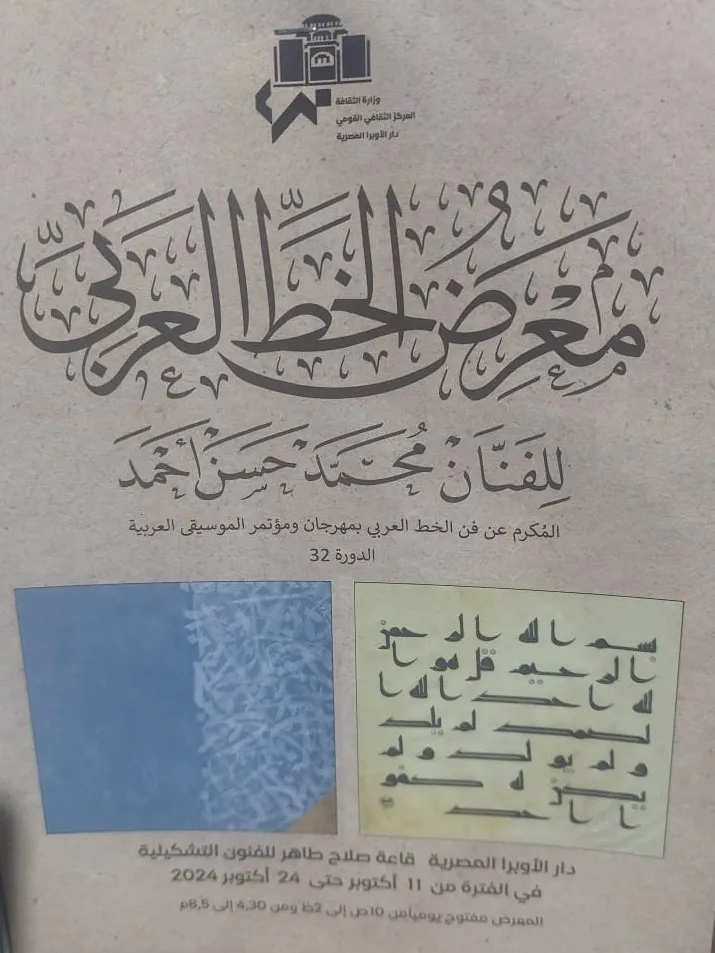 وزارة الثقافة
المركز الثقافي القومي
دار الأوبرا المصرية
معرض الخط العربي
للفنان محمد حسن أحمد
المُكرم عن فن الخط العربي بمهرجان ومؤتمر الموسيقى العربية
الدورة 32
بسم الله الر حمن
الر حيم قل هو ا
لله ا حد الله ا
لصمد لم يلد
و لم يو لد و لم
يكن له كفو
ا ا حد
دار الأوبرا المصرية قاعة صلاح طاهر للفنون التشكيلية
في الفترة من 11 أكتوبر حتى 24 أكتوبر 2024
المعرض مفتوح يومياً من 10ص إلى 2ظ ومن 4,30 إلى 6,5م